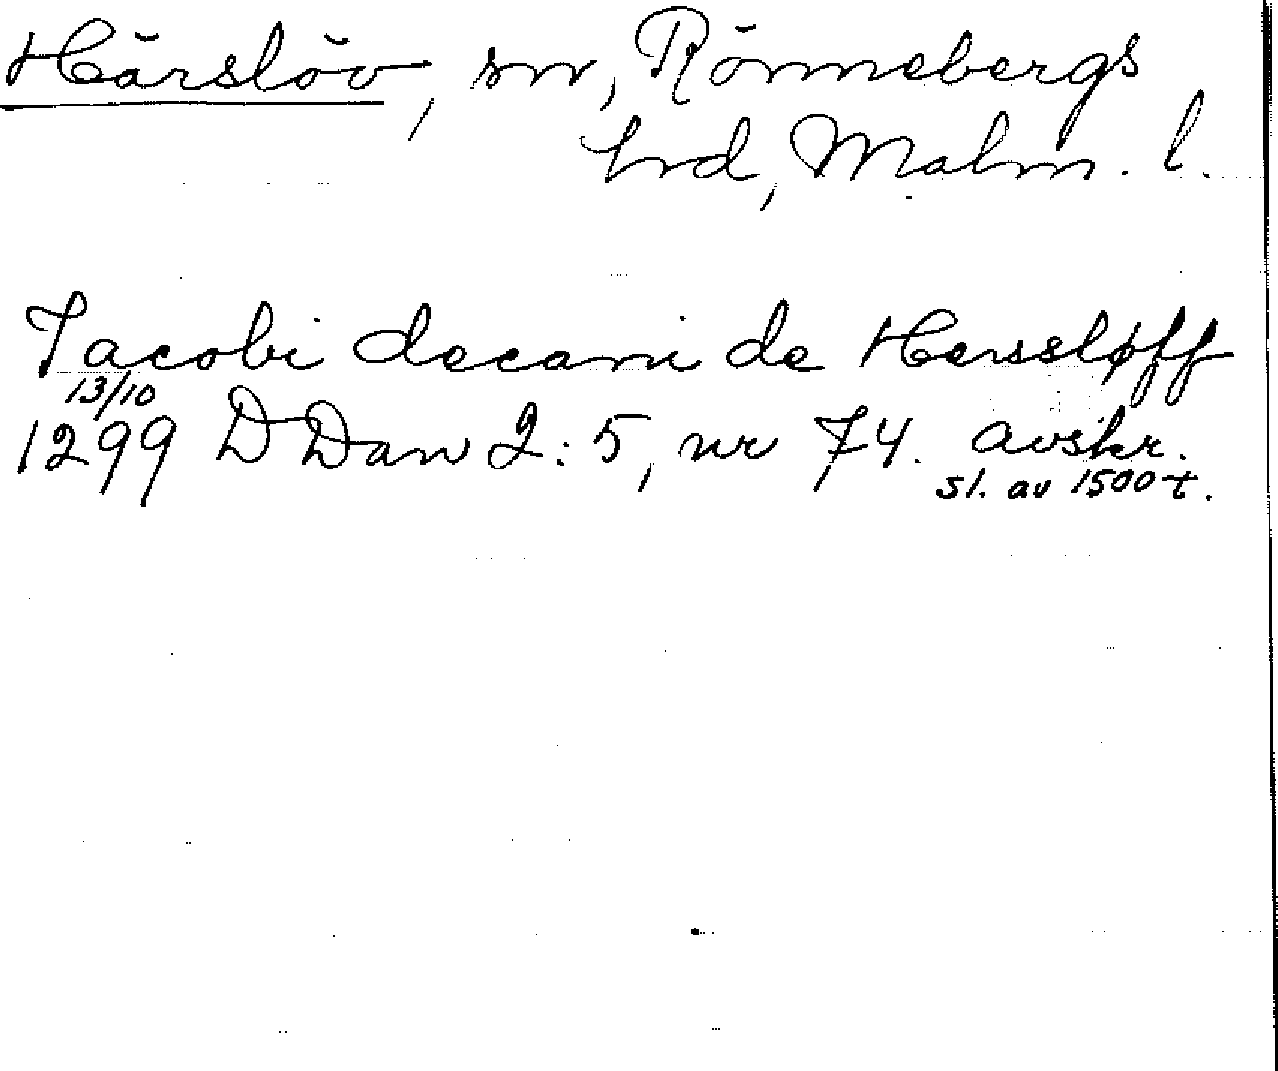 Härslöv, sn, Rönnebergs
hrd, Malm. l.
Jacobi decani de Herssløff
13/10
1299 DDan 2:5, nr 74. avskr.
sl. av 1500-t.